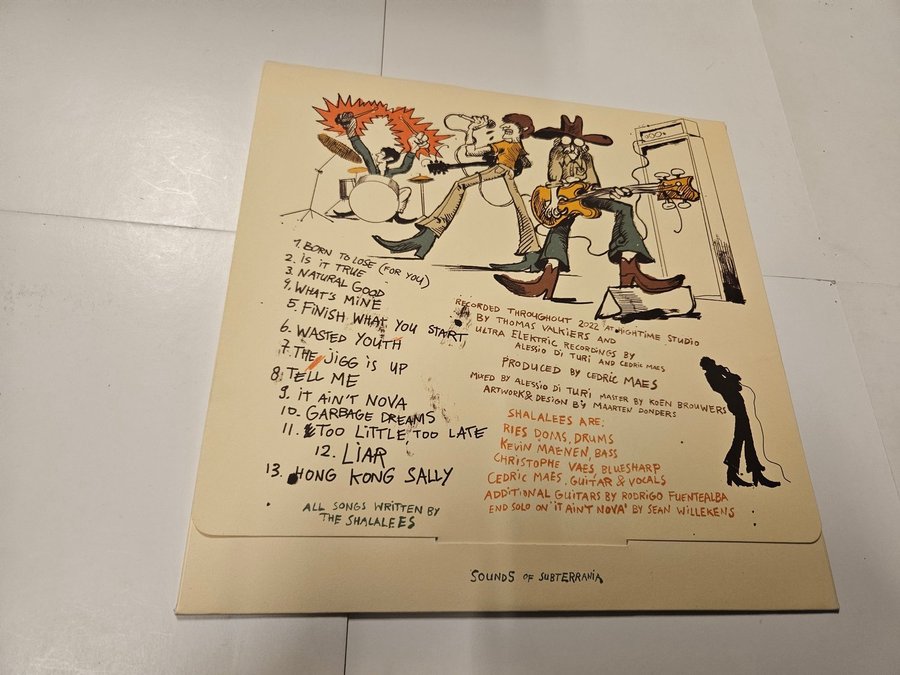 1. BORN TO LOSE (FOR YOU)
2. IS IT TRUE
3. NATURAL GOOD
4. WHAT'S MINE
5. FINISH WHAT YOU START
6. WASTED YOUTH
7. THE JIGG IS UP
8. TELL ME
9. IT AIN'T NOVA
10. GARBAGE DREAMS
11. TOO LITTLE, TOO LATE
12. LIAR
13. HONG KONG SALLY
ALL SONGS WRITTEN BY
THE SHALALEES
RECORDED THROUGHOUT 2022 AT HIGHTIME STUDIO
BY THOMAS VALKIERS AND
ULTRA ELEKTRIC RECORDINGS BY
ALESSIO DI TURI AND CEDRIC MAES
PRODUCED BY CEDRIC MAES
MIXED BY ALESSIO DI TURI MASTER BY KOEN BROUWERS
ARTWORK & DESIGN BY MAARTEN DONDERS
SHALALEES ARE:
RIES DOMS, DRUMS
KEVIN MAENEN, BASS
CHRISTOPHE VAES, BLUESHARP
CEDRIC MAES, GUITAR & VOCALS
ADDITIONAL GUITARS BY RODRIGO FUENTEALBA
END SOLO ON 'IT AIN'T NOVA' BY SEAN WILLEKENS
SOUNDS OF SUBTERRANIA